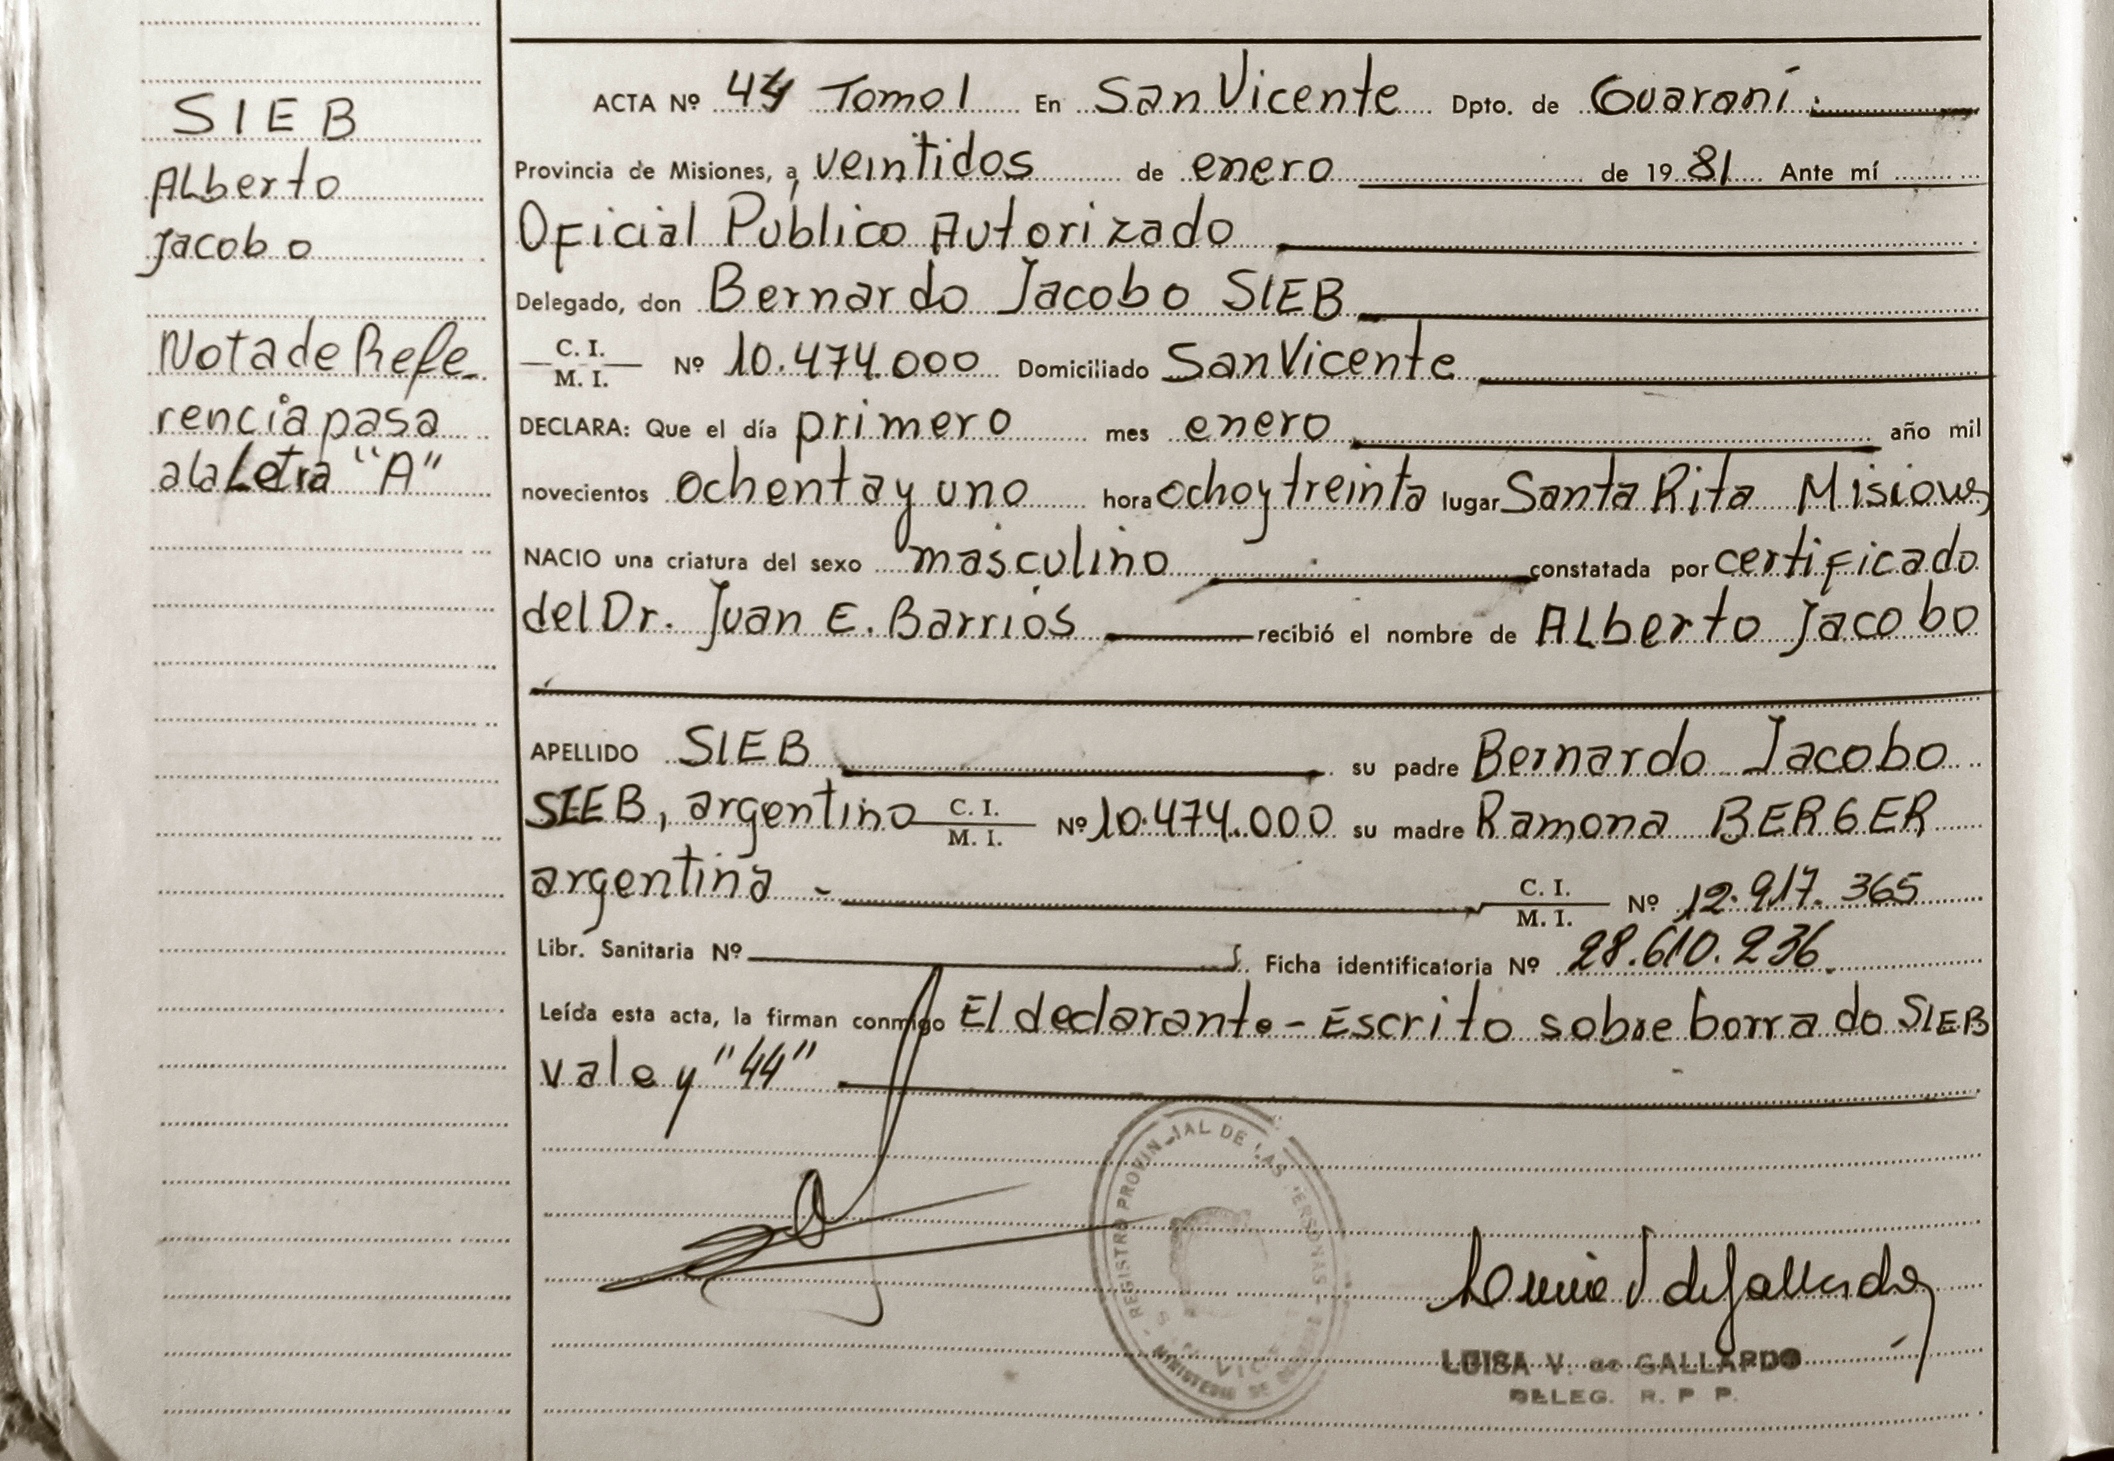 SIEB
Alberto
Jacobo
Nota de Refe_
rencia pasa
a la Letra "A"
ACTA Nº 44 Tomo I En San Vicente Dpto. de Guaraní.
Provincia de Misiones, a veintidos de enero de 19 81 Ante mí
Oficial Publico Autorizado
Delegado, don Bernardo Jacobo SIEB
C. I.
M. I. Nº 10.474.000 Domiciliado San Vicente
DECLARA: Que el día primero mes enero año mil
novecientos ochenta y uno hora ocho y treinta lugar Santa Rita Misiones
NACIO una criatura del sexo masculino constatada por certificado
del Dr. Juan E. Barrios recibió el nombre de Alberto Jacobo
APELLIDO SIEB su padre Bernardo Jacobo
SIEB, argentino C. I. M. I. Nº 10.474.000 su madre Ramona BERGER
argentina - C. I. M. I. Nº 12.917.365
Libr. Sanitaria Nº Ficha identificatoria Nº 28.610.236
Leída esta acta, la firman conmigo El declarante - Escrito sobre borrado SIEB
vale y "44"
REGISTRO PROVINCIAL DE LAS PERSONAS
MINISTERIO DE
LUISA V. de GALLARDO
DELEG. R. P. P.